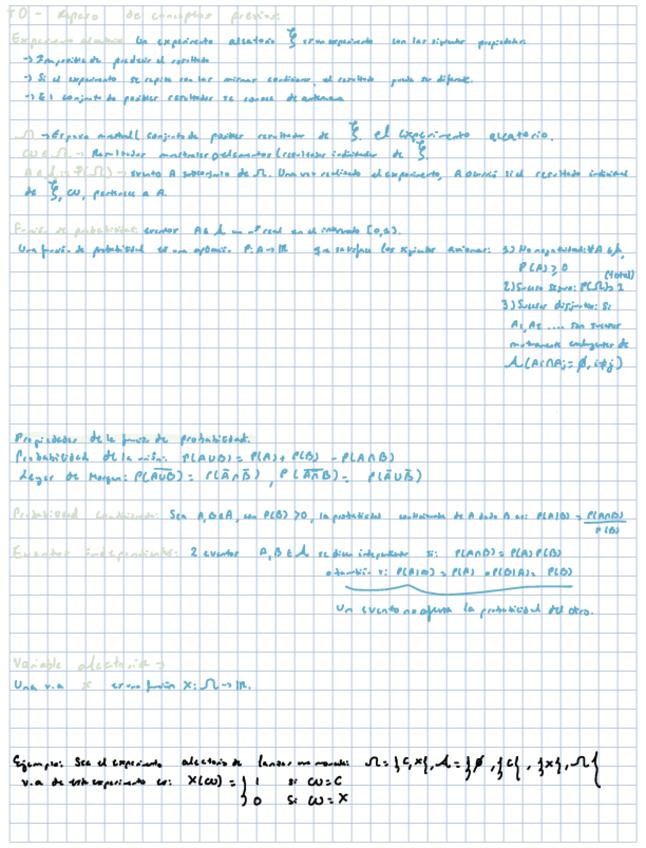 T0 - Repaso de conceptos previos:
Experimento aleatorio: Un experimento aleatorio ξ es un experimento con las siguientes propiedades:
-> Imposible de predecir el resultado
-> Si el experimento se repite con las mismas condiciones, el resultado puede ser diferente.
-> El conjunto de posibles resultados se conoce de antemano
Ω -> Espacio muestral (conjunto de posibles resultados de ξ, el experimento aleatorio.
ω ∈ Ω -> Resultados muestrales o elementos (resultados individuales de ξ
A ∈ 𝒜 = P(Ω) -> evento A subconjunto de Ω. Una vez realizado el experimento, A ocurrió si el resultado individual
de ξ, ω, pertenece a A.
Función de probabilidad: eventos A ∈ 𝒜 un nº real en el intervalo [0,1].
Una función de probabilidad es una P: A -> ℝ que satisface los siguientes axiomas: 1) No negatividad: ∀A ∈ 𝒜,
P(A) ≥ 0
(total)
2) Suceso seguro: P(Ω) = 1
3) Sucesos disjuntos: Si
A₁, A₂ .... son sucesos
mutuamente excluyentes de
𝒜 (Ai ∩ Aj = ∅, i ≠ j)
Propiedades de la función de probabilidad:
Probabilidad de la unión: P(A∪B) = P(A) + P(B) - P(A∩B)
Leyes de Morgan: P(A̅∪̅B̅) = P(A̅∩B̅), P(A̅∩̅B̅) = P(A̅∪B̅)
Probabilidad condicionada: Sea A,B ∈ A, con P(B) > 0, la probabilidad condicionada de A dado B es: P(A|B) = P(A∩B) / P(B)
Eventos independientes: 2 eventos A, B ∈ 𝒜 se dicen independientes si: P(A∩B) = P(A)P(B)
o también si: P(A|B) = P(A) o P(B|A) = P(B)
Un evento no afecta la probabilidad del otro.
Variable aleatoria ->
Una v.a X es una función X: Ω -> ℝ.
Ejemplo: Sea el experimento aleatorio de lanzar una moneda: Ω = {C, X}, 𝒜 = {∅, {C}, {X}, Ω}
v.a de este experimento es: X(ω) = { 1 si ω = C
0 si ω = X